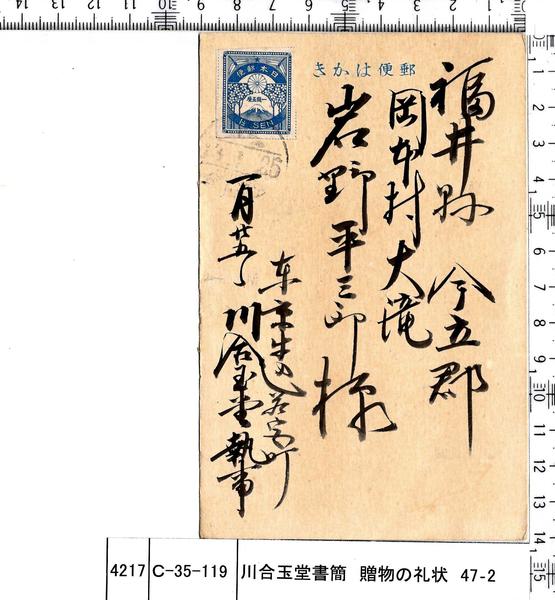 郵便はかき
日本郵便
一銭五厘
1½ SEN
福井縣今立郡
岡本村大滝
岩野平三郎様
東京牛込若宮町
一月廿五日
川合玉堂執事
4217 C-35-119 川合玉堂書簡 贈物の礼状 47-2